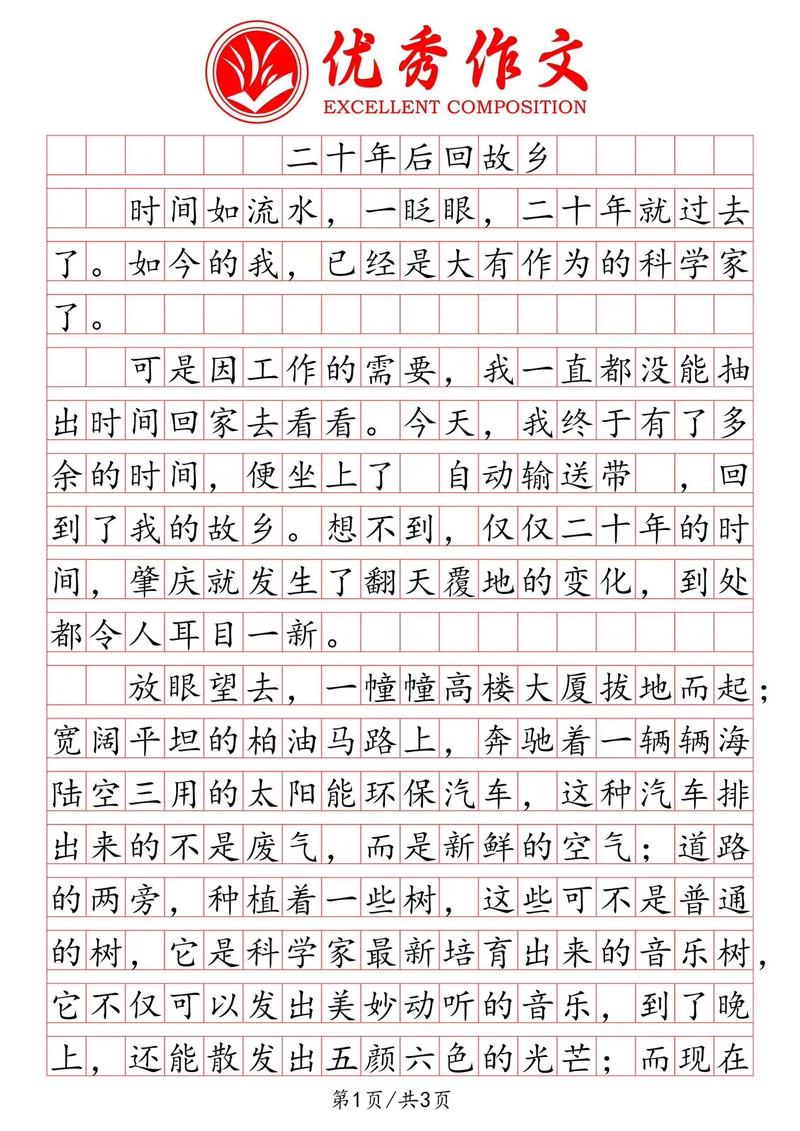 优秀作文
EXCELLENT COMPOSITION
二十年后回故乡
时间如流水，一眨眼，二十年就过去
了。如今的我，已经是大有作为的科学家
了。
可是因工作的需要，我一直都没能抽
出时间回家去看看。今天，我终于有了多
余的时间，便坐上了 自动输送带 ，回
到了我的故乡。想不到，仅仅二十年的时
间，肇庆就发生了翻天覆地的变化，到处
都令人耳目一新。
放眼望去，一幢幢高楼大厦拔地而起；
宽阔平坦的柏油马路上，奔驰着一辆辆海
陆空三用的太阳能环保汽车，这种汽车排
出来的不是废气，而是新鲜的空气；道路
的两旁，种植着一些树，这些可不是普通
的树，它是科学家最新培育出来的音乐树，
它不仅可以发出美妙动听的音乐，到了晚
上，还能散发出五颜六色的光芒；而现在
第1页/共3页